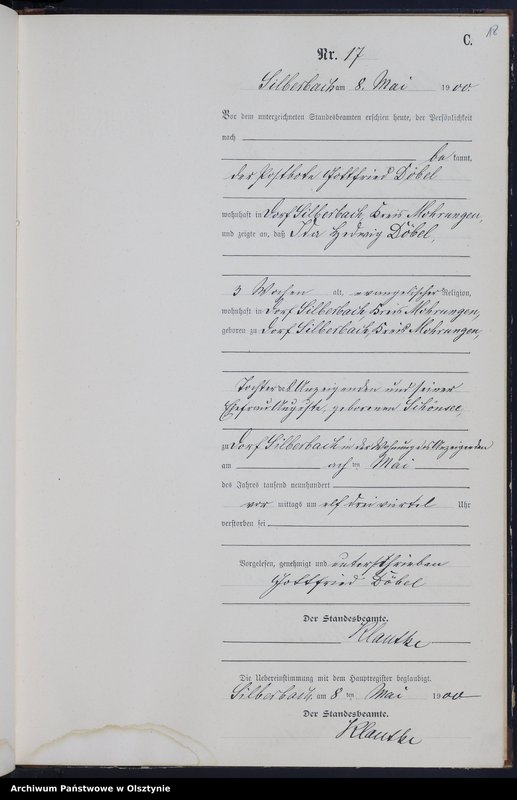 C.
Nr. 17
Silberbach am 8. Mai 1900
Vor dem unterzeichneten Standesbeamten erschien heute, der Persönlichkeit
nach
be kannt,
der Postbote Gottfried Döbel
wohnhaft in Dorf Silberbach, Kreis Mohrungen,
und zeigte an, daß Ida Hedwig Döbel,
3 Wochen alt, evangelischer Religion,
wohnhaft in Dorf Silberbach Kreis Mohrungen,
geboren zu Dorf Silberbach, Kreis Mohrungen,
Tochter des Anzeigenden und seiner
Ehefrau Auguste, geborenen Schönsee
zu Dorf Silberbach in der Wohnung des Anzeigenden
am ach ten Mai
des Jahres tausend neunhundert
vor mittags um elf drei viertel Uhr
verstorben sei
Vorgelesen, genehmigt und unterschrieben
Gottfried Döbel
Der Standesbeamte.
Klautke
Die Uebereinstimmung mit dem Hauptregister beglaubigt.
Silberbach am 8 ten Mai 1900
Der Standesbeamte.
Klautke
Archiwum Państwowe w Olsztynie